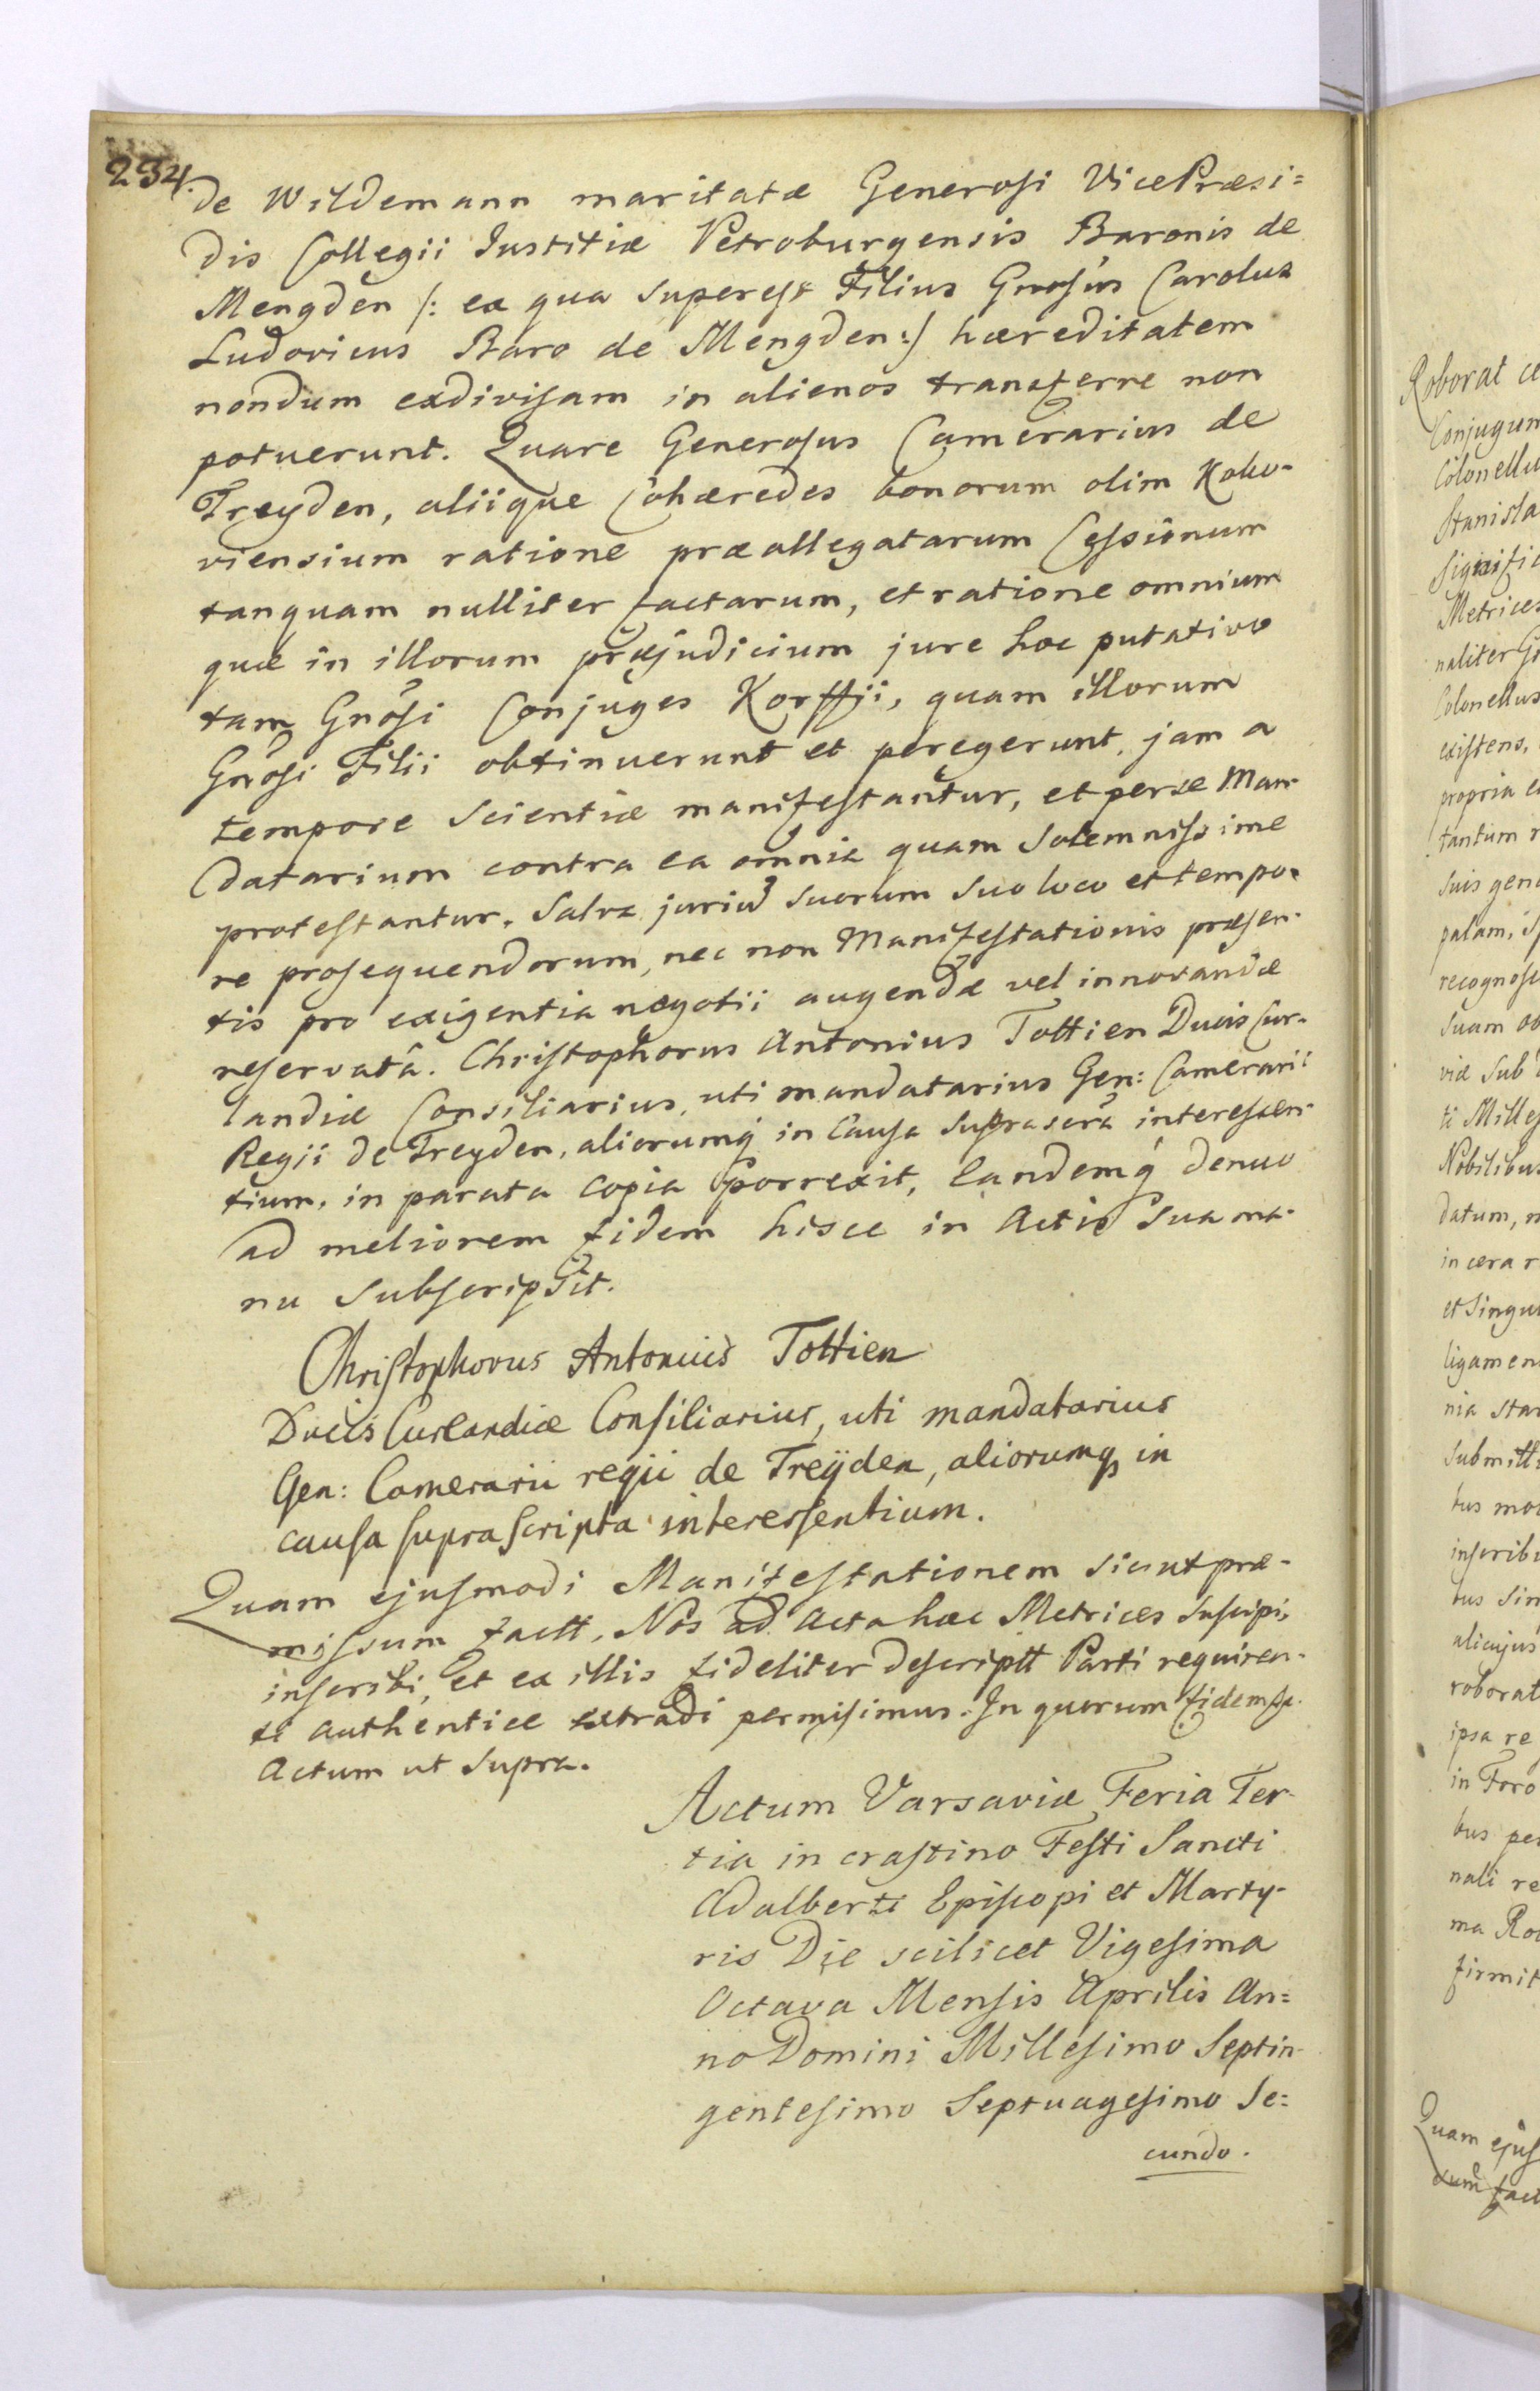 234.
de Wildemann maritatæ Generosi VicePræsi=
dis Collegii Iustitiæ Petroburgensis Baronis de
Mengden /: ex qua superest Filius Gnosus Carolus
Ludovicus Baro de Mengden :/ hæreditatem
nondum exdivisam in alienos transferre non
potuerunt. Quare Generosus Camerarius de
Treyden, aliique Cohæredes bonorum olim Koko-
viensium ratione præallegatarum Cessionum
tanquam nulliter factarum, et ratione omnium
quæ in illorum præjudicium jure hoc putativo
tam Gnosi Conjuges Korffii, quam illorum
Gnosi Filii obtinuerunt et peregerunt, jam a
tempore scientiæ manifestantur, et per se Man-
datarium contra ea omnia quam Solemnissime
protestantur. Salva jurium suorum suo loco et tempo-
re prosequendorum, nec non Manifestationis præsen-
tis pro exigentia negotii augendæ vel innovandæ
reservatâ. Christophorus Antonius Tottien Ducis Cur-
landiæ Consiliarius, uti mandatarius Gen: Camerarii
Regii de Treyden, aliorumq́ in Causa suprascra interessen-
tium, in parata copia porrexit, Eandemq́ denuo
ad meliorem fidem hisce in Actis sua ma-
nu subscripsit.
Christophorus Antonius Tottien
Ducis Curlandiæ Consiliarius, uti mandatarius
Gen: Camerarii regii de Treÿden, aliorumq, in
causa supra scripta interessentium.
Quam ejusmodi Manifestationem sicut præ-
missum factt, Nos ad Acta hæc Metrices suscipi,
inscribi, et ex illis fideliter descriptt Parti requiren-
ti authentice extradi permisimus. In quorum fidem
Actum ut supra.
Actum Varsaviæ Feria Ter-
tia in crastino Festi Sancti
Adalberti Episcopi et Marty-
ris Die scilicet Vigesima
Octava Mensis Aprilis An=
no Domini Millesimo Septin-
gentesimo Septuagesimo Se=
cundo.
Roborat
Conjugum
Colonellu
Stanisla
Signific
Metrices
naliter
Colonellus
existens,
propria
tantum
suis gen
palam,
recognosc
suam
viæ sub
ti Milles
Nobilibus
datum,
in cera
et singu
ligamen
nia
submitt
tus
inscribi
bus
alicujus
roborat
ipsa re
in Foro
bus per
nali re
ma
firmit
Quam ejus